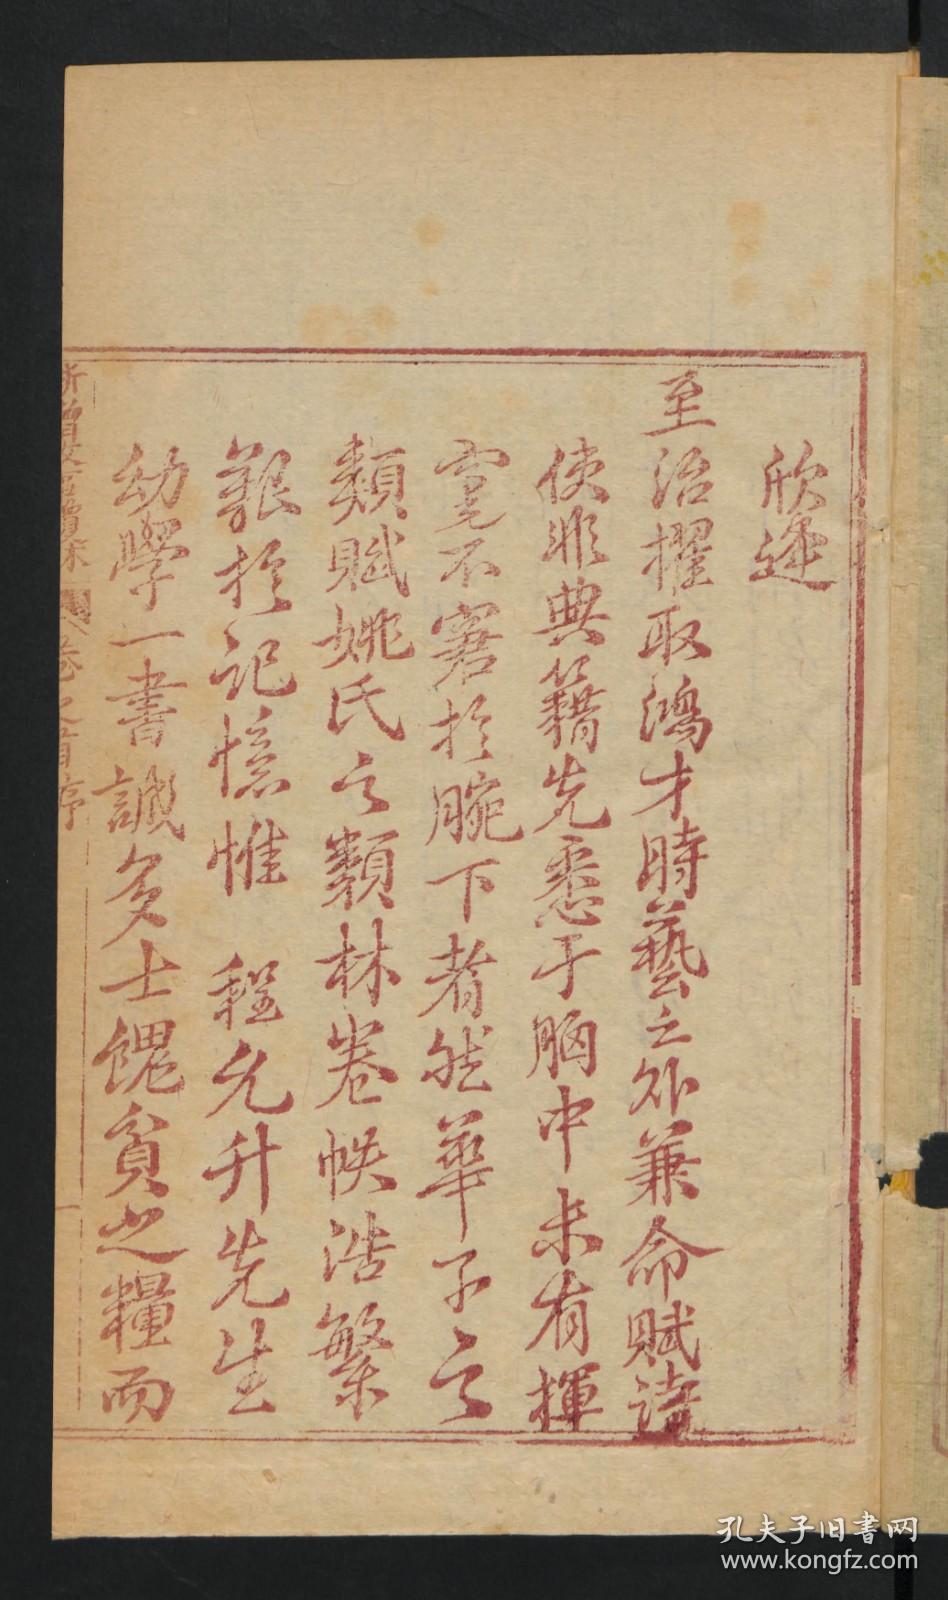 欣逢
至治擢取鴻才時藝之外兼命賦詩
使非典籍先悉于胸中未有揮
毫不窘於腕下者然華子之
類賦姚氏之類林卷帙浩繁
艱於記憶惟 程允升先生
幼學一書誠多士餽貧之糧而
卷之首序
孔夫子旧书网
www.kongfz.com